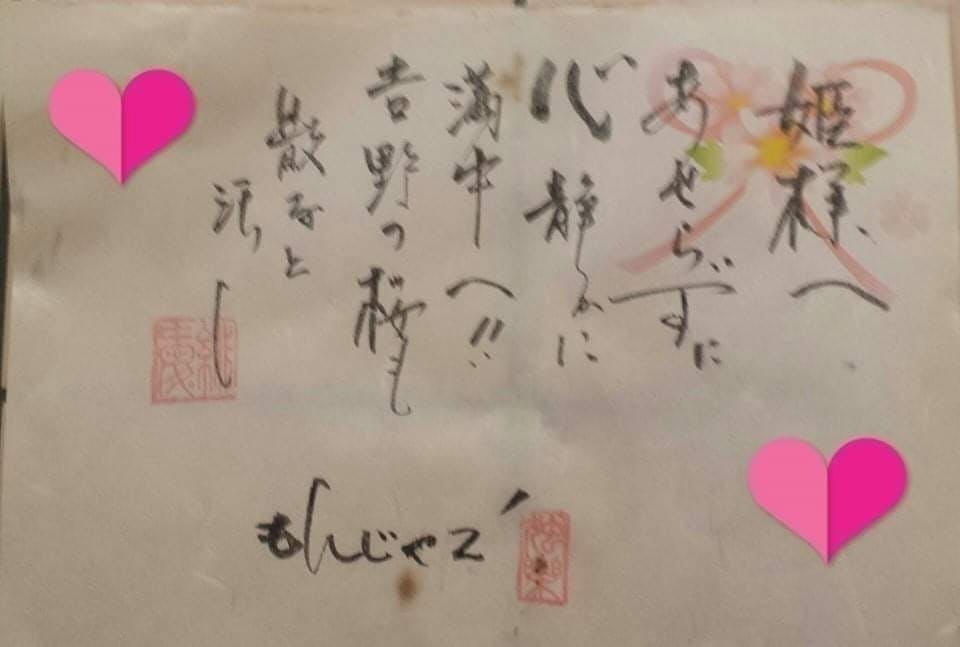 姫様へ
あせらずに
心静かに
満中へ!!
吉野の桜も
散ると
もんじゃこ